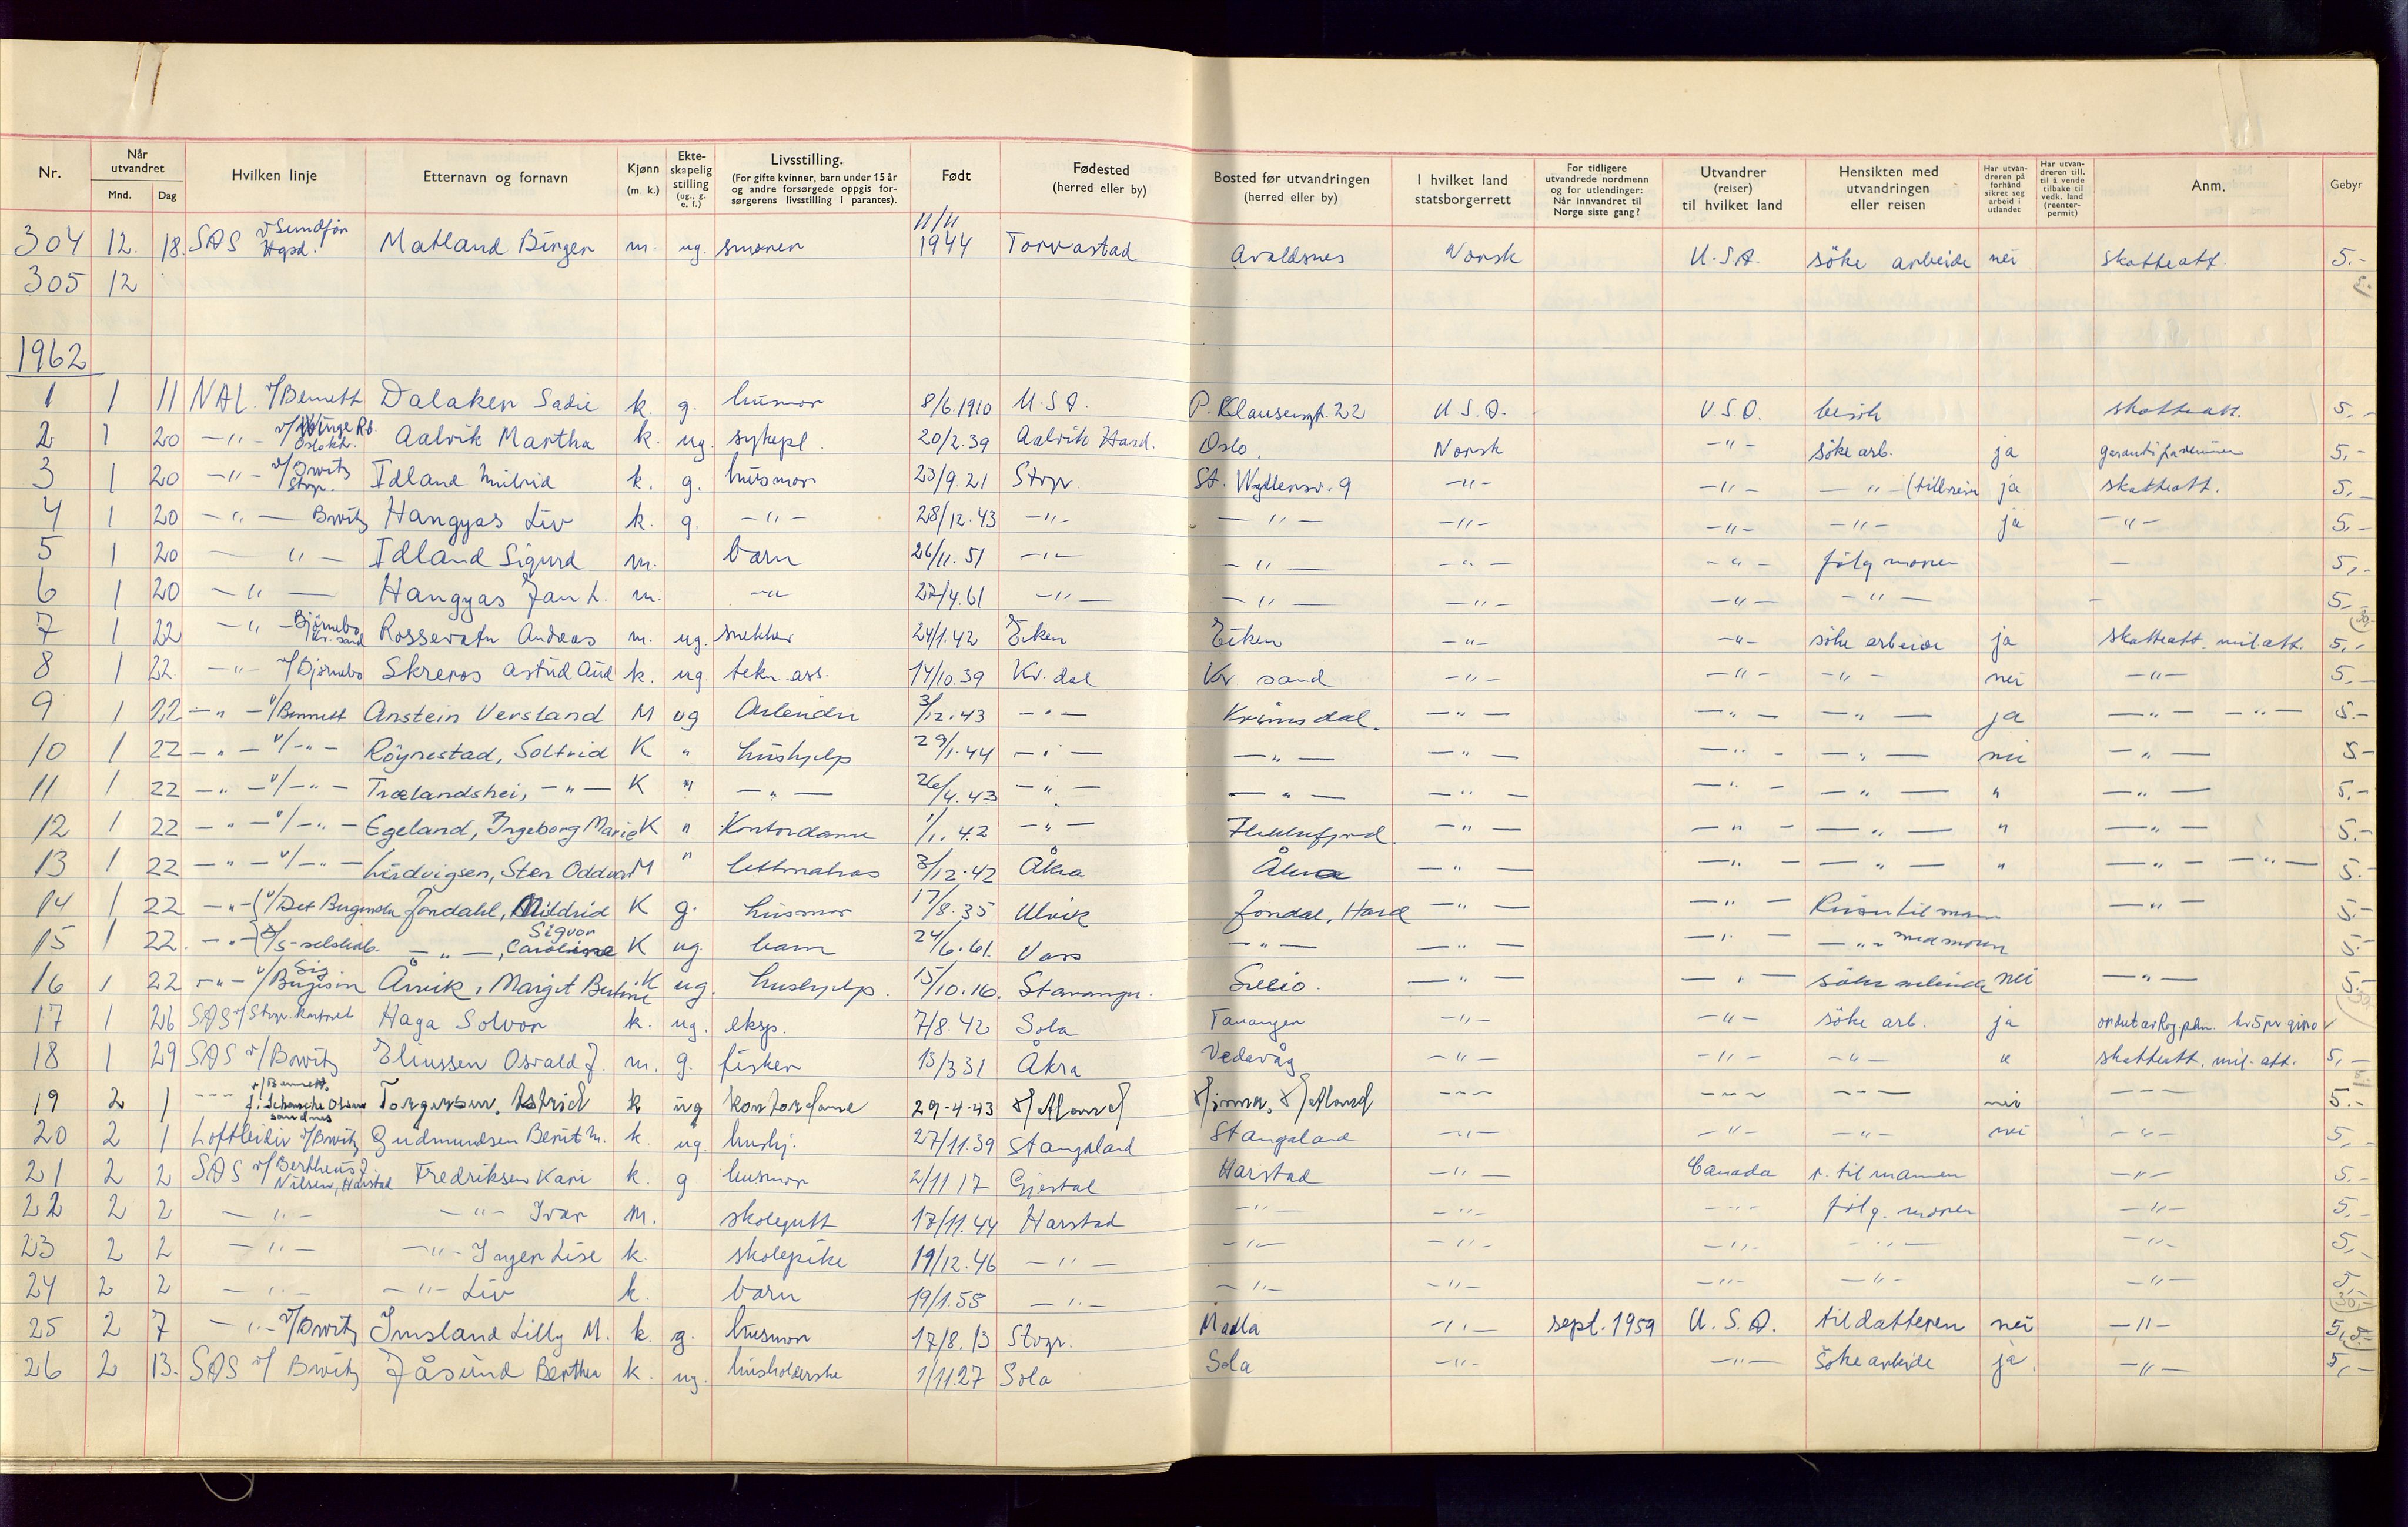 Nr. Når utvandret Mnd. Dag Hvilken linje Etternavn og fornavn Kjønn (m. k.) Ekteskapelig stilling (ug., g. e. f.) Livsstilling. (For gifte kvinner, barn under 15 år og andre forsørgede oppgis forsørgerens livsstilling i parantes). Født Fødested (herred eller by) Bosted før utvandringen (herred eller by) I hvilket land statsborgerrett For tidligere utvandrede nordmenn og for utlendinger: Når innvandret til Norge siste gang? Utvandrer (reiser) til hvilket land Hensikten med utvandringen eller reisen Har utvandreren på forhånd sikret seg arbeid i utlandet Har utvandreren till. til å vende tilbake til vedk. land (reenterpermit) Anm. Gebyr
304 12. 18. SAS v/Sundfør Hgsd. Matland Birger m. ug. smører 11/11 1944 Torvastad Avaldsnes Norsk U.S.A. söke arbeide nei skatteatt. 5.-
305 12
1962
1 1 11 NAL. v/Bennett Dalaker Sadie k. g. husmor 8/6.1910 U.S.A. P. Klausensgt. 22 U.S.A. U.S.A. besök skatteatt. 5,-
2 1 20 -"- v/Winge Rb. Oslokt. Aalvik Martha k. ug. sykepl. 20/2.39 Aalvik Hard. Oslo. Norsk -"- söke arb. ja 5,-
3 1 20 -"- v/Brvitz Stvgr. Idland Milrid k. g. husmor 23/9.21 Stvgr. St. 9 -"- -"- -"- ja skatteatt. 5,-
4 1 20 -"- Hangyas Liv k. g. -"- 28/12.43 -"- -"- -"- -"- -"- ja -"- 5,-
5 1 20 -"- Idland Sigurd m. barn 26/11.51 -"- -"- -"- -"- fölg moren - 5,-
6 1 20 -"- Hangyas Jan L. m. -"- 27/4.61 -"- -"- -"- -"- -"- - 5,-
7 1 22 -"- Bjørnebo Kr. sand Rossevatn Andreas m. ug. snekker 24/1.42 Eiken Eiken -"- -"- söke arbeide ja skatteatt. mil.att. 5,-
8 1 22 -"- v/Bjørnebo Skreros Astrid Aud k. ug. tekn. ass. 14/10.39 Kv. dal Kr. sand -"- -"- -"- nei -"- 5,-
9 1 22 -"- v/Bennett Anstein Versland M ug Arbeider 3/12.43 -"- Kvinesdal. -"- -"- -"- ja -"- -"- 5.-
10 1 22 -"- v/-"- Röynestad, Solfrid K " hushjelp 29/1.44 -"- -"- -"- -"- -"- nei -"- 5-
11 1 22 -"- v/-"- Trælandshei, -"- K " -"- 26/4.43 -"- -"- -"- -"- -"- " -"- 5.-
12 1 22 -"- v/-"- Egeland, Ingeborg Marie K " Kontordame 1/1.42 -"- -"- -"- -"- " -"- 5.-
13 1 22 -"- v/-"- Ludvigsen, Sten Oddvar M " lettmatros 3/12.42 Åkra Åkra -"- -"- -"- " -"- -"- 5.-
14 1 22 -"- (v/Det Bergenske Jondahl, Mildrid K g. husmor 17/8.35 Ulvik Jondal, Hard -"- -"- Reiser til mann -"- 5.-
15 1 22. -"- -"-, Sigvor Caroline K ug. barn 24/6.61. Voss -"- -"- -"- -"- med moren 5.-
16 1 22 -"- v/ Årvik, Margit Bertine K ug. hushjelp. 15/10.16. Stavanger. -"- -"- söke arbeide nei -"- 5.-
17 1 26 SAS v/Stvgr. kontoret Haga Solvor k. ug. eksp. 7/8.42 Sola Tananger -"- -"- söke arb. ja
18 1 29 SAS v/Brvitz Eliassen Osvald J. m. g. fisker 13/3 31 Åkra Vedavåg -"- -"- -"- " skatteatt. mil. att. 5,-
19 2 1 --- v/Bennett. sandnes Torgersen, Astrid k ug kontordame 29.4.43 --- --- --- nei --- 5.-
20 2 1 Loftleidir v/Brvitz Gudmundsen Berit M. k. ug. hushj. 27/11.39 Stangaland Stangaland -"- -"- -"- nei -"- 5,-
21 2 2 SAS v/Bertheus J. Nilsen, Harstad Fredriksen Kari k. g husmor 2/11 17 Gjestal Harstad -"- Canada r. til mannen -"- 5.-
22 2 2 -"- -"- Ivar m. skolegutt 17/11.44 Harstad -"- -"- -"- fölg. moren -"- 5,-
23 2 2 -"- -"- Inger Lise k. skolepike 19/12.46 -"- -"- -"- -"- -"- -"- 5,-
24 2 2 -"- -"- Liv k. barn 19/1.55 -"- -"- -"- -"- -"- -"- 5,-
25 2 7 -"- v/Brvitz Imsland Lilly M. k. g. husmor 17/8.13 Stvgr. Madla -"- sept. 1959 U.S.A. til datteren nei -"- 5,-
26 2 13. SAS v/ Brvitz Jåsund Berthe k. ug. husholderske 1/11.27 Sola Sola -"- -"- Söke arbeide ja. -"- 5,-